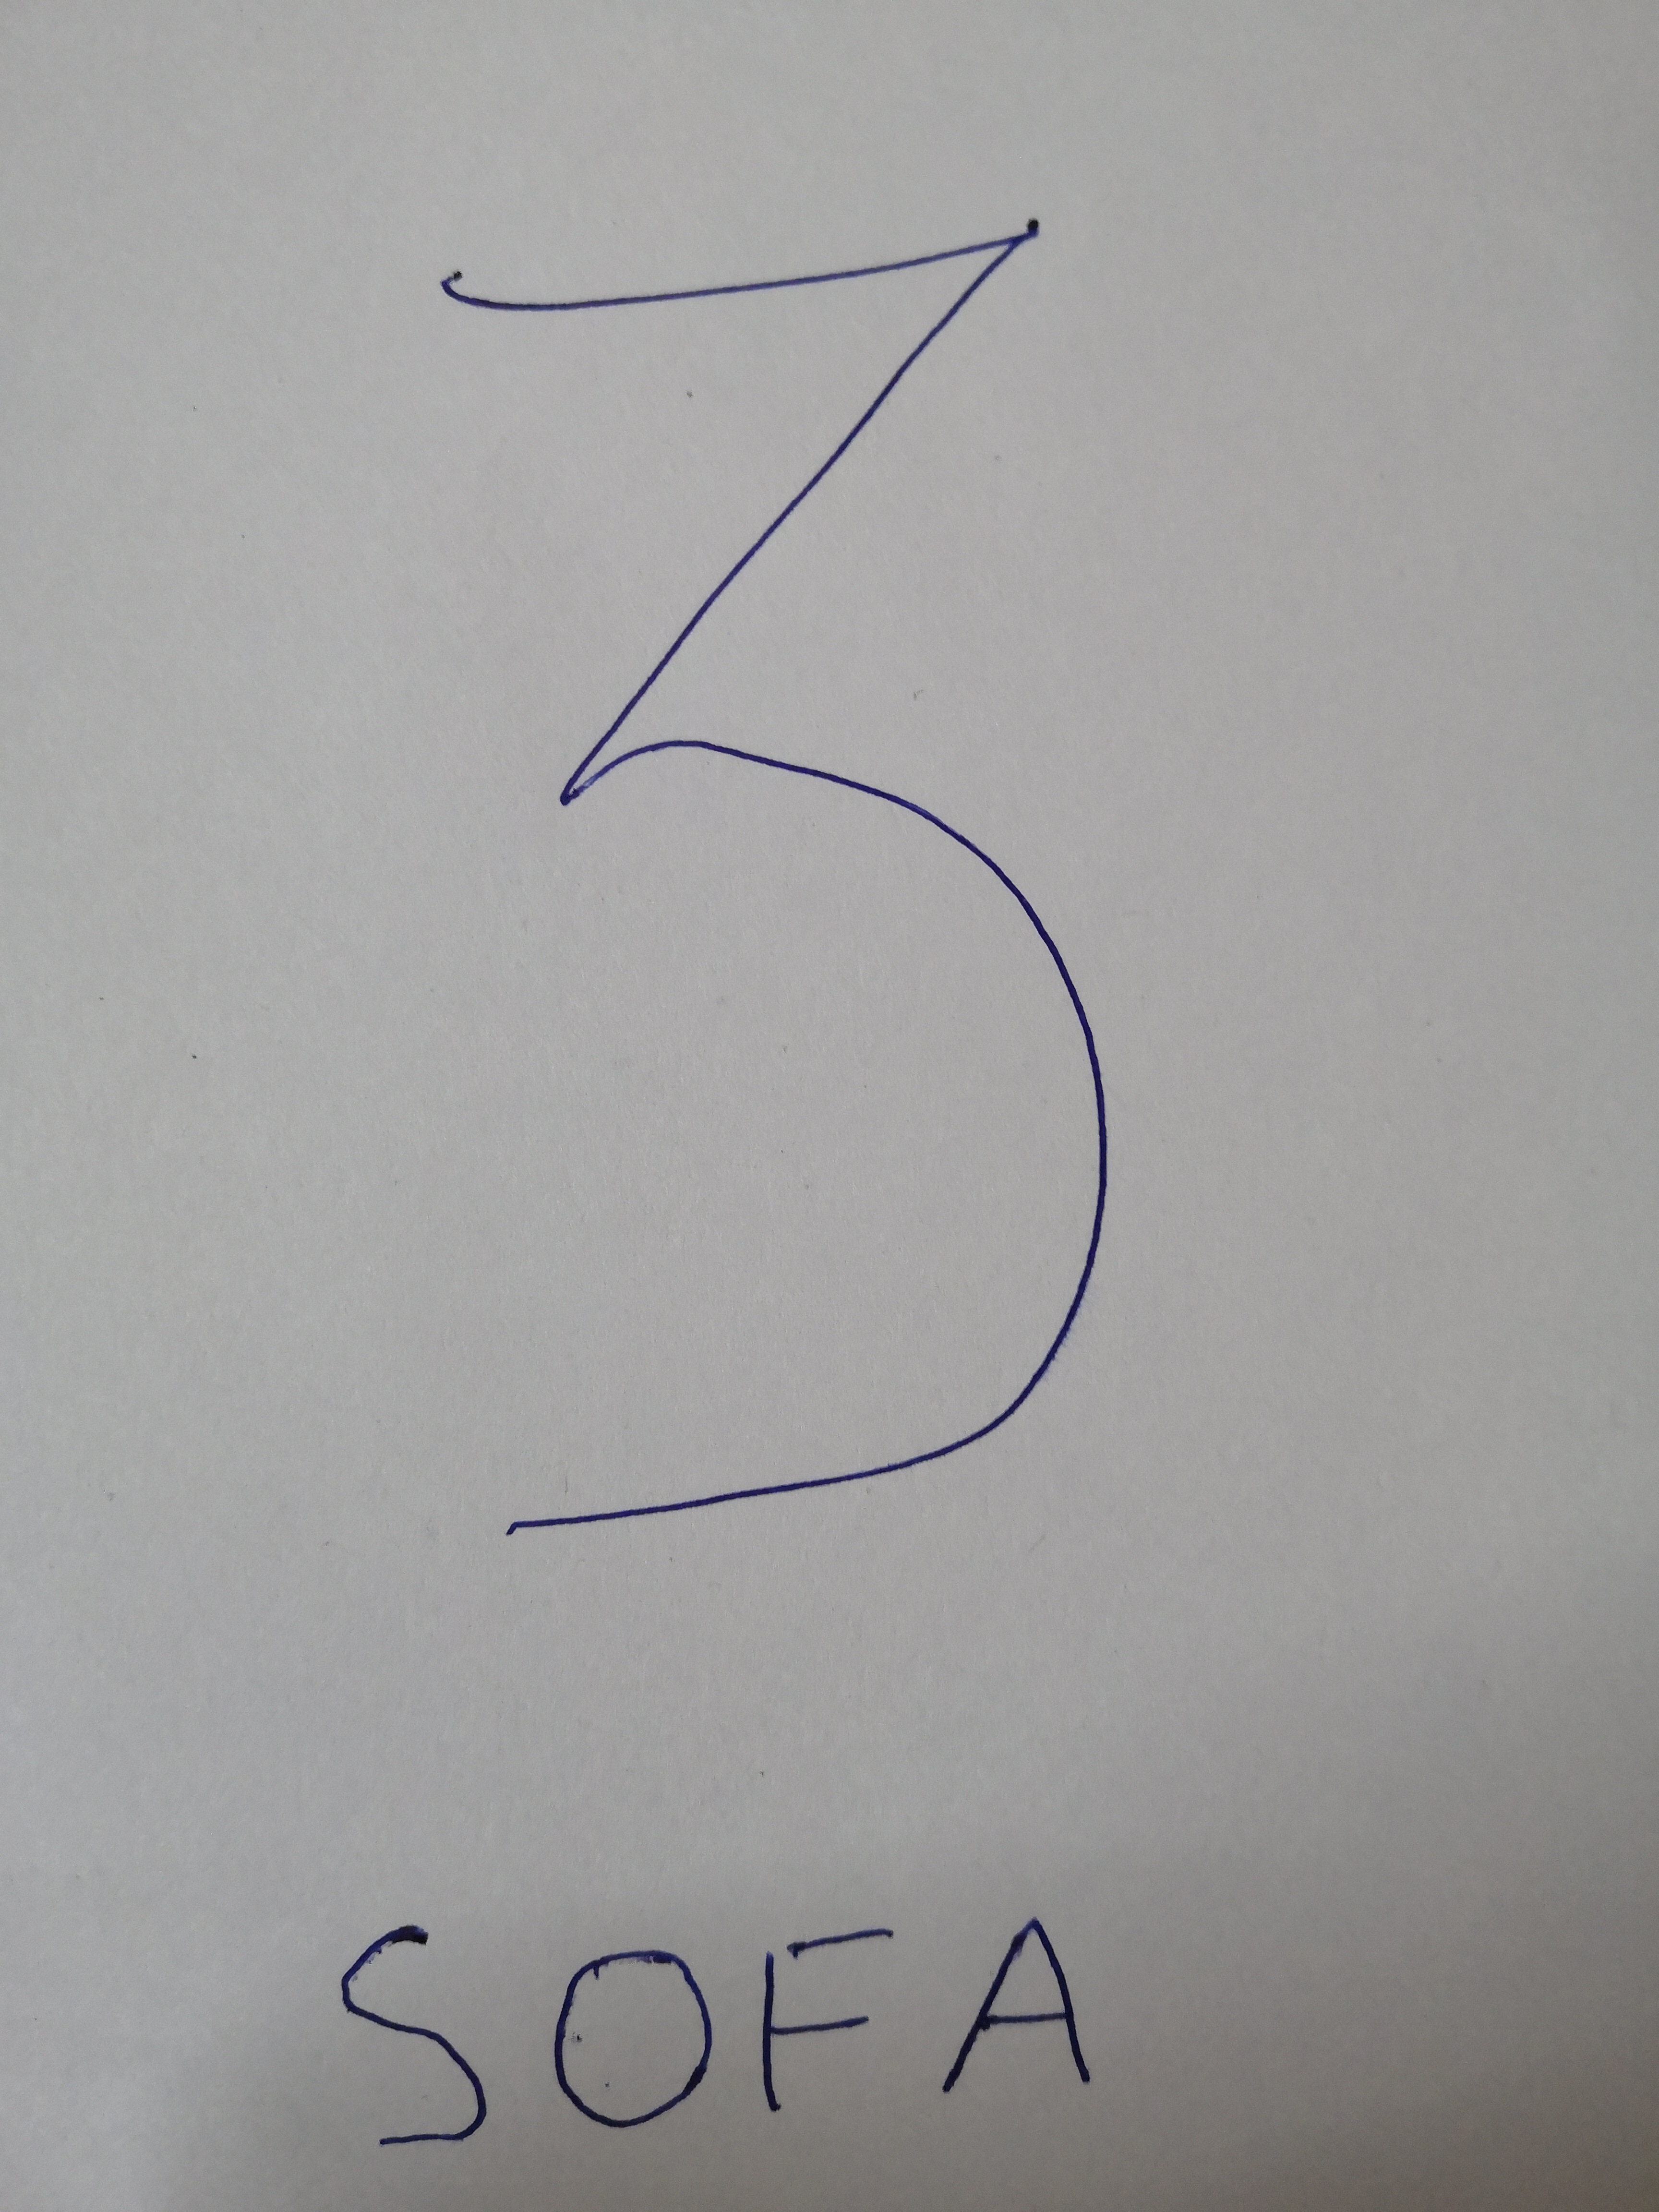 3
SOFA